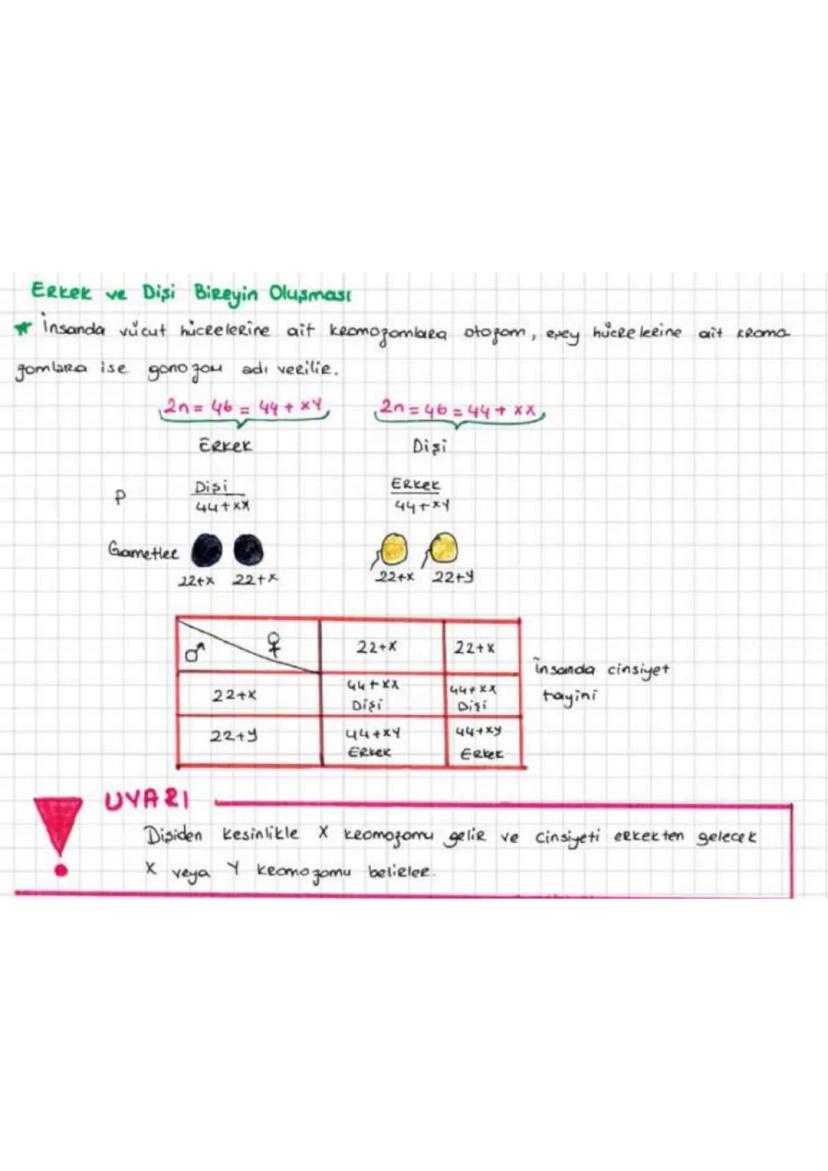 Erkek ve Dişi Bireyin Oluşması
* İnsanda vücut hücrelerine ait kromozomlara otozom, eşey hücrelerine ait kromo
zomlara ise gonozom adı verilir.
2n = 46 = 44 + XY 2n = 46 = 44 + XX
Erkek Dişi
P Dişi Erkek
44+XX 44+XY
Gametler
22+X 22+X 22+X 22+Y
♂ ♀ 22+X 22+X
İnsanda cinsiyet
tayini
22+X 44+XX 44+XX
Dişi Dişi
22+Y 44+XY 44+XY
Erkek Erkek
UYARI
Dişiden kesinlikle X kromozomu gelir ve cinsiyeti erkekten gelecek
X veya Y kromozomu belirler.